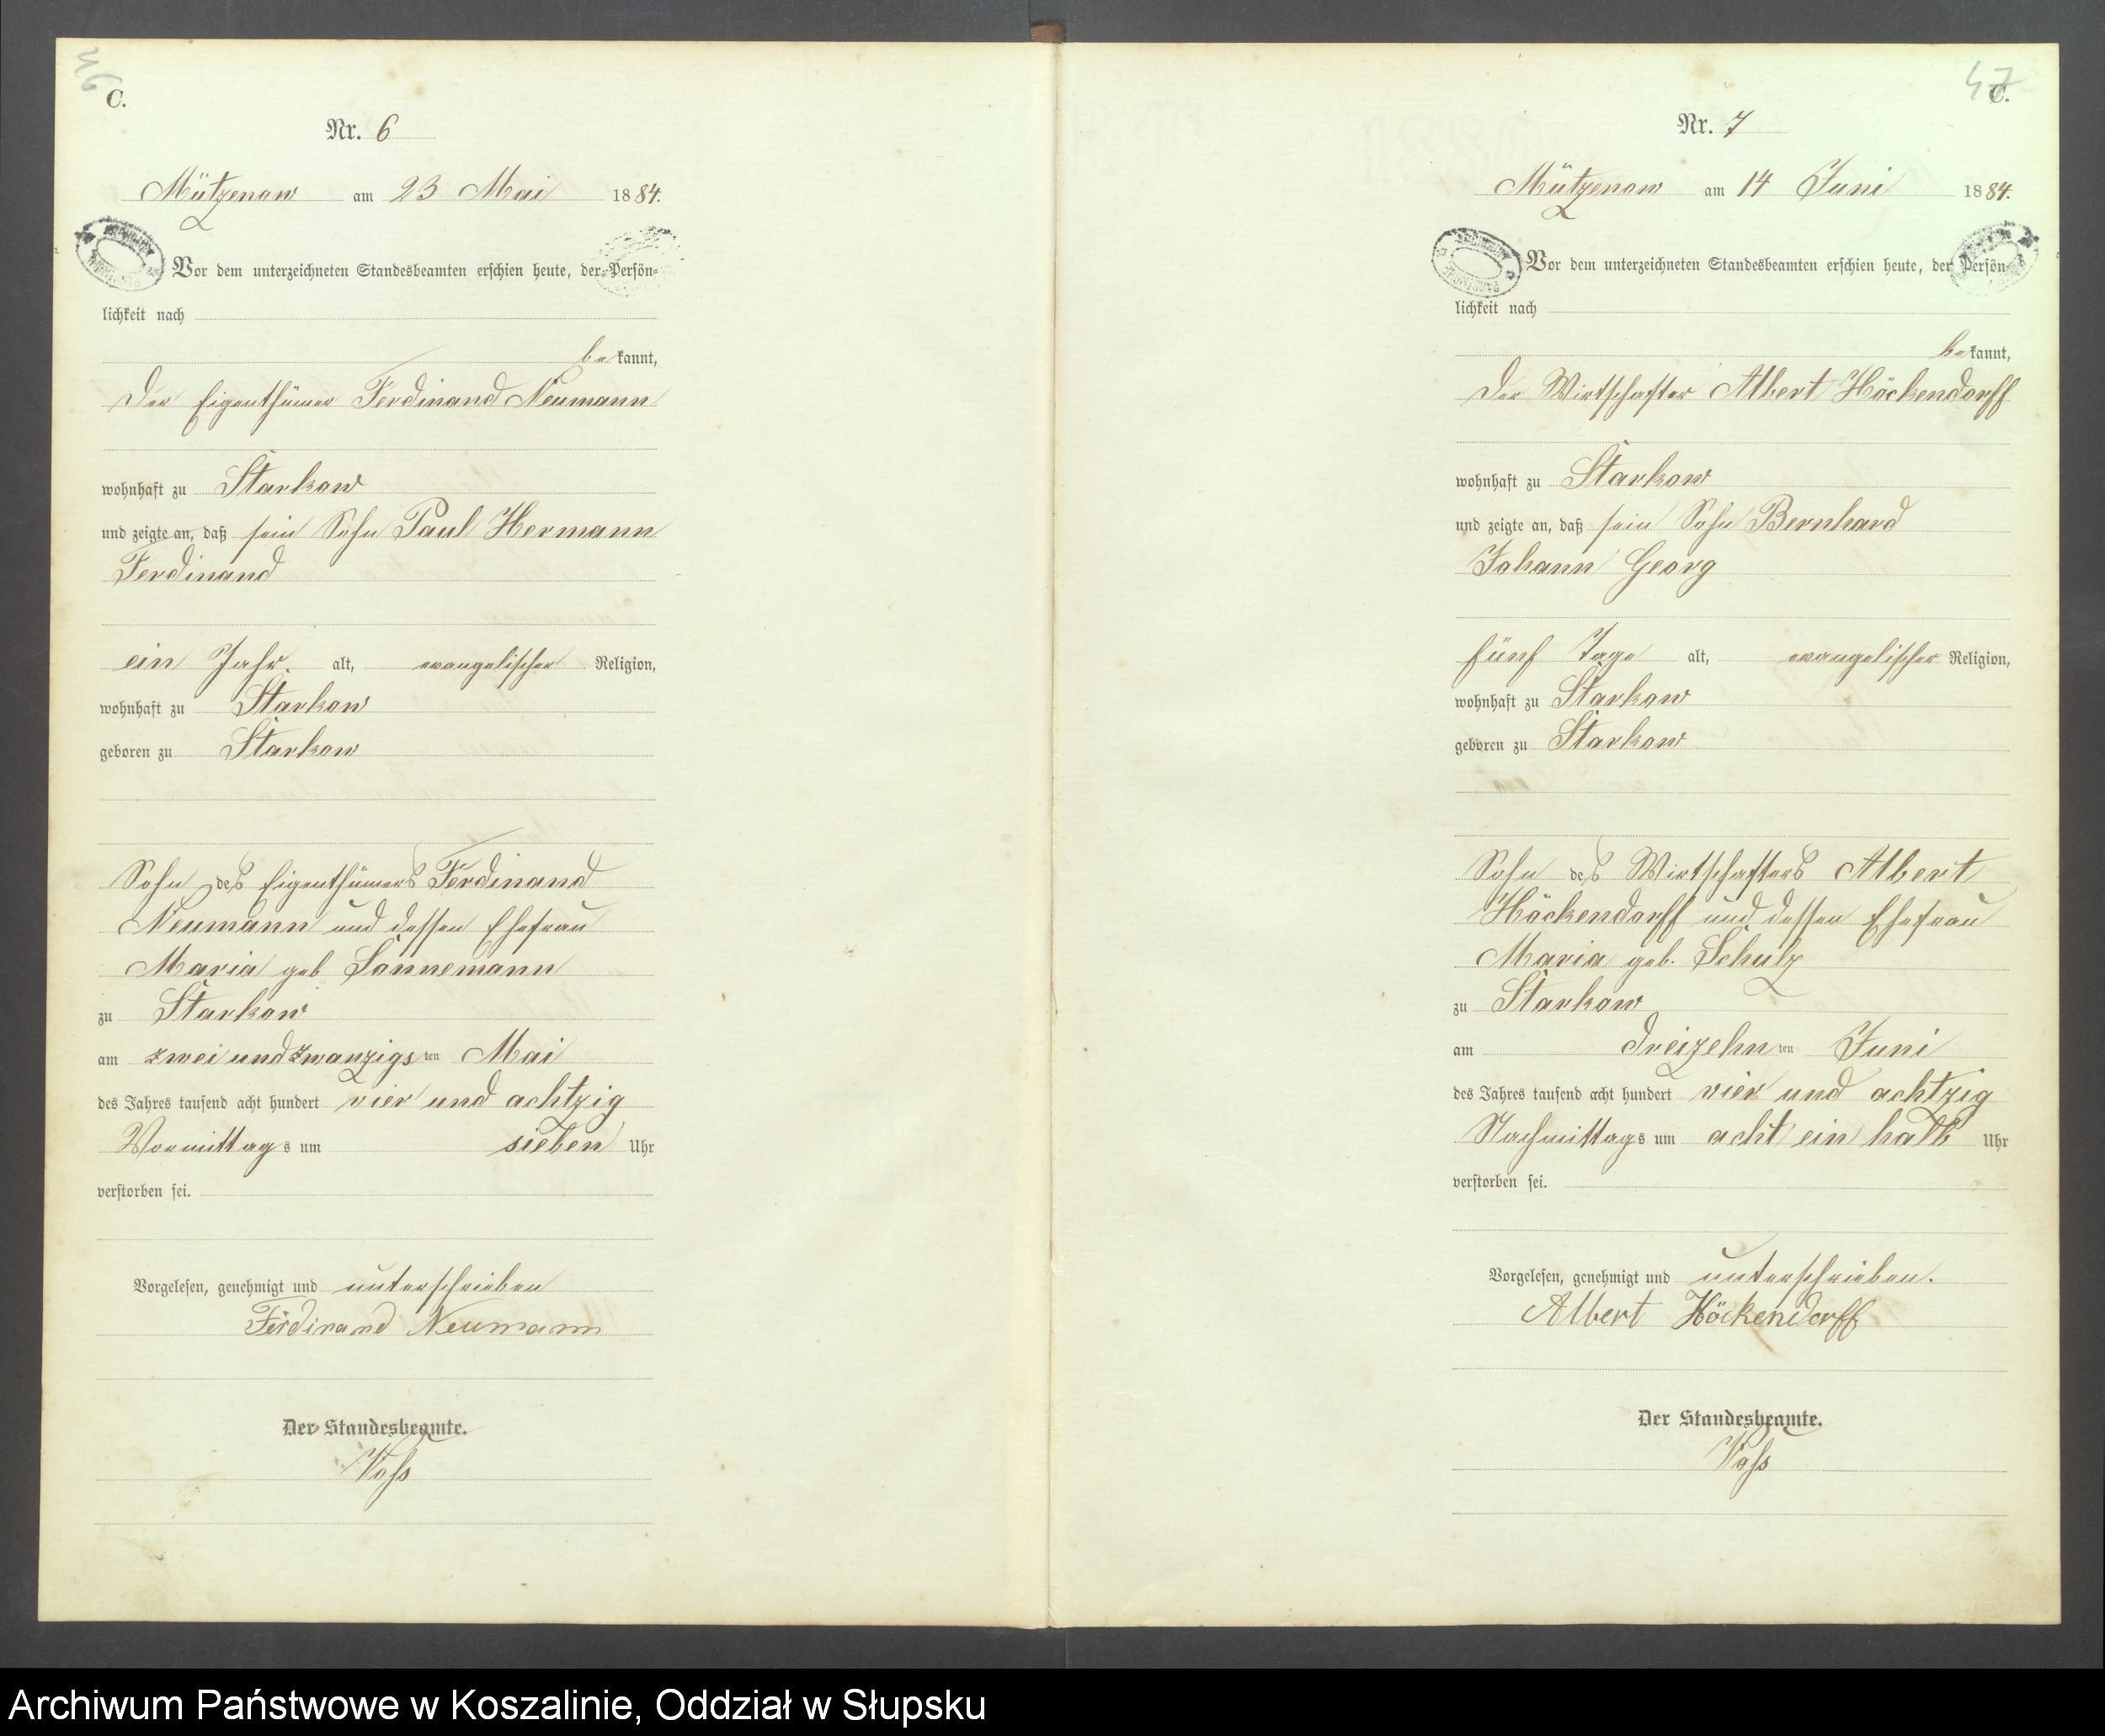 46
C.
Nr. 6
Mützenow am 23 Mai 1884.
Vor dem unterzeichneten Standesbeamten erschien heute, der Persön-
lichkeit nach
bekannt,
der Eigenthümer Ferdinand Neumann
wohnhaft zu Starkow
und zeigte an, daß sein Sohn Paul Hermann
Ferdinand
ein Jahr. alt, evangelischer Religion,
wohnhaft zu Starkow
geboren zu Starkow
Sohn des Eigenthümers Ferdinand
Neumann und dessen Ehefrau
Maria geb Sonnemann
zu Starkow
am zwei und zwanzigsten Mai
des Jahres tausend acht hundert vier und achtzig
Vormittags um sieben Uhr
verstorben sei.
Vorgelesen, genehmigt und unterschrieben
Ferdinand Neumann
Der Standesbeamte.
Voß
47
C.
Nr. 7
Mützenow am 14 Juni 1884.
Vor dem unterzeichneten Standesbeamten erschien heute, der Persön-
lichkeit nach
bekannt,
der Wirtschafter Albert Höckendorff
wohnhaft zu Starkow
und zeigte an, daß sein Sohn Bernhard
Johann Georg
fünf Tage alt, evangelischer Religion,
wohnhaft zu Starkow
geboren zu Starkow
Sohn des Wirtschafters Albert
Höckendorff und dessen Ehefrau
Maria geb. Schulz
zu Starkow
am dreizehnten Juni
des Jahres tausend acht hundert vier und achtzig
Nachmittags um acht ein halb Uhr
verstorben sei.
Vorgelesen, genehmigt und unterschrieben.
Albert Höckendorff
Der Standesbeamte.
Voß
Archiwum Państwowe w Koszalinie, Oddział w Słupsku